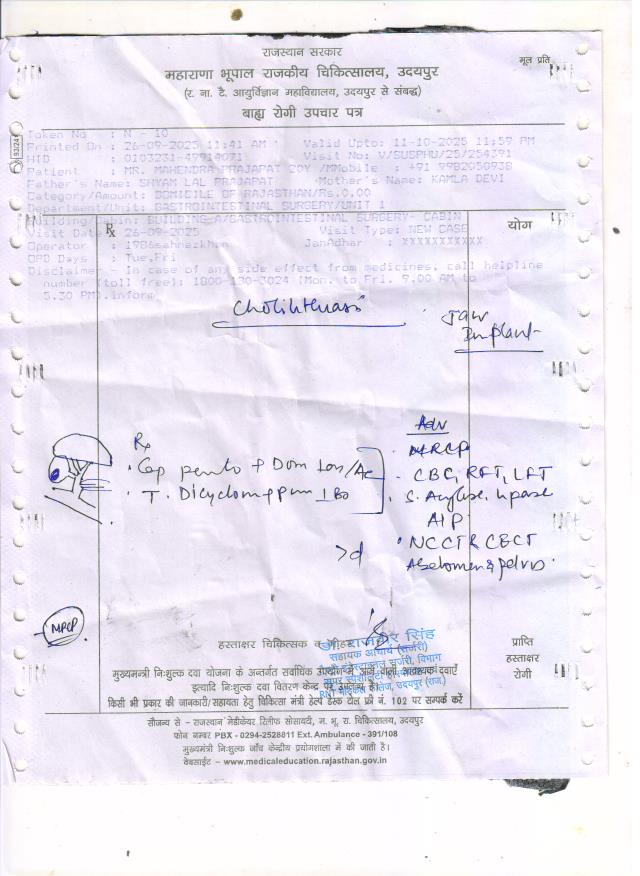 राजस्थान सरकार
मूल प्रति
महाराणा भूपाल राजकीय चिकित्सालय, उदयपुर
(र. ना. टै. आयुर्विज्ञान महाविद्यालय, उदयपुर से संबद्ध)
बाह्य रोगी उपचार पत्र
93/24
Token No : N - 10
Printed On : 26-09-2025 11:41 AM Valid Upto: 11-10-2025 11:59 PM
HID : 0103231-49914071 Visit No: V/SUSPHU/25/254391
Patient : MR. MAHENDRA PRAJAPAT /MMobile : +91 9982050938
Father's Name: SHYAM LAL PRAJAPAT Mother's Name: KAMLA DEVI
Category/Amount: DOMICILE OF RAJASTHAN/Rs.0.00
Department/Unit: GASTROINTESTINAL SURGERY/UNIT 1
BUILDING A/GASTROINTESTINAL SURGERY- CABIN
योग
Visit Date 26-09-2025 Visit Type: NEW CASE
Operator : JanAdhar : XXXXXXXXXXX
OPD Days : Tue,Fri
Disclaimer - In case of any side effect from medicines, call helpline
number (toll free): 1800-180-3024 (Mon. to Fri. 9.00 AM to
5.30 PM).inform
Jaw
Implant
Adv
Rx
MRCP
Cap panto + Dom
CBC, RFT, LFT
T.
S. Amylase, lipase
NCCT
Abdomen & pelvis
MRCP
हस्ताक्षर चिकित्सक
सहायक आचार्य (सर्जरी)
प्राप्ति
हस्ताक्षर
रोगी
मुख्यमंत्री निःशुल्क दवा योजना के अन्तर्गत सर्वाधिक उपयोग में आने वाली आवश्यक दवाएँ
इत्यादि निःशुल्क दवा वितरण केन्द्र पर उपलब्ध है।
किसी भी प्रकार की जानकारी/सहायता हेतु चिकित्सा मंत्री हेल्प डेस्क टोल फ्री नं. 102 पर सम्पर्क करें
सौजन्य से - राजस्थान मेडीकेयर रिलीफ सोसायटी, म. भू. रा. चिकित्सालय, उदयपुर
फोन नम्बर PBX - 0294-2528811 Ext. Ambulance - 391/108
मुख्यमंत्री निःशुल्क जाँच केन्द्रीय प्रयोगशाला में की जाती है।
वेबसाईट - www.medicaleducation.rajasthan.gov.in